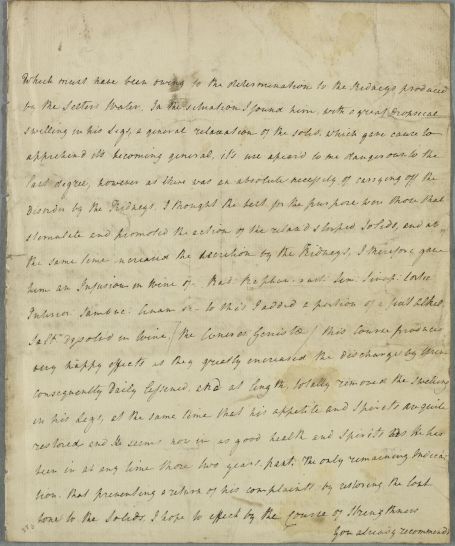 Which must have been owing to the determination to the Kidneys produced
by the Selters Water. In the situation I found him, with a great Dropsical
swelling in his Legs, a general relaxation of the solids, which gave cause to
apprehend its becoming general, it's use apeard to me dangerous to the
last degree, however as there was an absolute necessity of carrying off the
Disorder by the Kidneys, I thought the best for the purpose were those that
stemulate and promoted the action of the relax'd Solids, and at
the same time increased the secretion by the Kidneys, I therefore gave
him an Infusion in Wine of Rad: Raphan: rust: Sem: Sinap: Cortic
Interior Sambuc: to this I added a portion of a fixt Alkal.
Salt dissolved in Wine, (the Cineres Genistæ) this Course produced
very happy effects as they greatly increased the discharge by Urine
consequently Daily lessened and at length, totally removed the swelling
in his Legs, at the same time that his appetite and Spirits are quite
restored and He seems now in as good health and Spirits as He has
been in at any time those two years past. The only remaining Indica-
tion, that preventing a return of his complaints by restoring the lost
tone to the Solids, I hope to effect by the Course of Strengthners
You already recommend